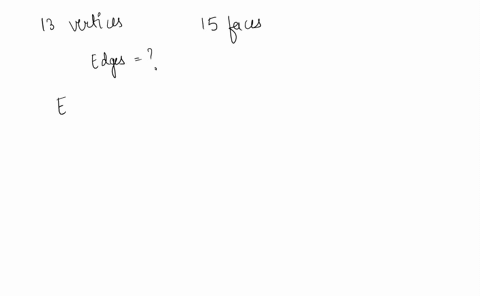 13 vertices 15 faces
Edges = ?
E